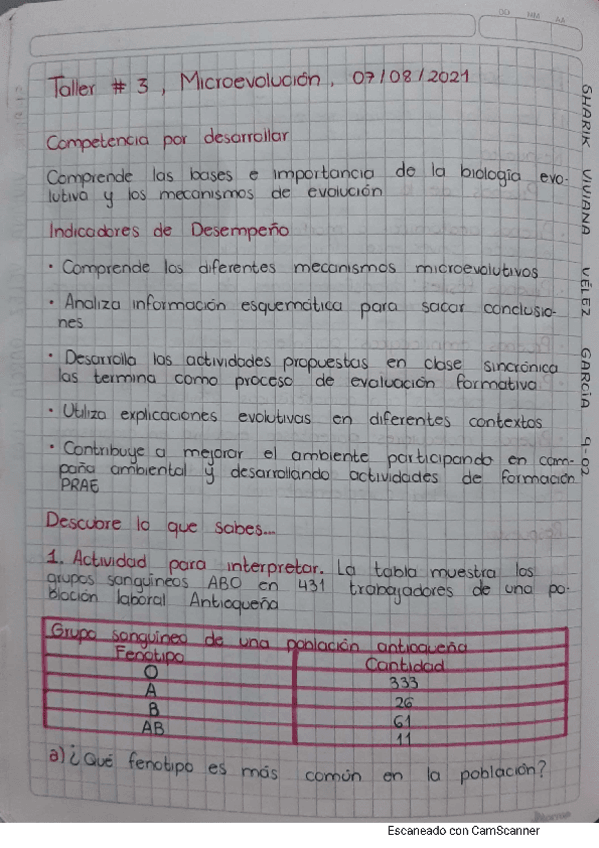 DD MM AA
Taller # 3, Microevolución, 07/08/2021
Competencia por desarrollar
Comprende las bases e importancia de la biología evo-
lutiva y los mecanismos de evolución
Indicadores de Desempeño
• Comprende los diferentes mecanismos microevolutivos
• Analiza información esquemática para sacar conclusio-
nes
• Desarrolla las actividades propuestas en clase sincrónica
las termina como proceso de evaluación formativa
• Utiliza explicaciones evolutivas en diferentes contextos
• Contribuye a mejorar el ambiente participando en cam-
paña ambiental y desarrollando actividades de formación
PRAE
Descubre lo que sabes...
1. Actividad para interpretar. La tabla muestra los
grupos sanguineos ABO en 431 trabajadores de una po-
blación laboral Antioqueña
Grupo sanguineo de una población antioqueña
Fenotipo Cantidad
O 333
A 26
B 61
AB 11
a) ¿Qué fenotipo es más común en la población?
SHARIK VIVIANA VÉLEZ GARCÍA 9-02
Norma
Escaneado con CamScanner